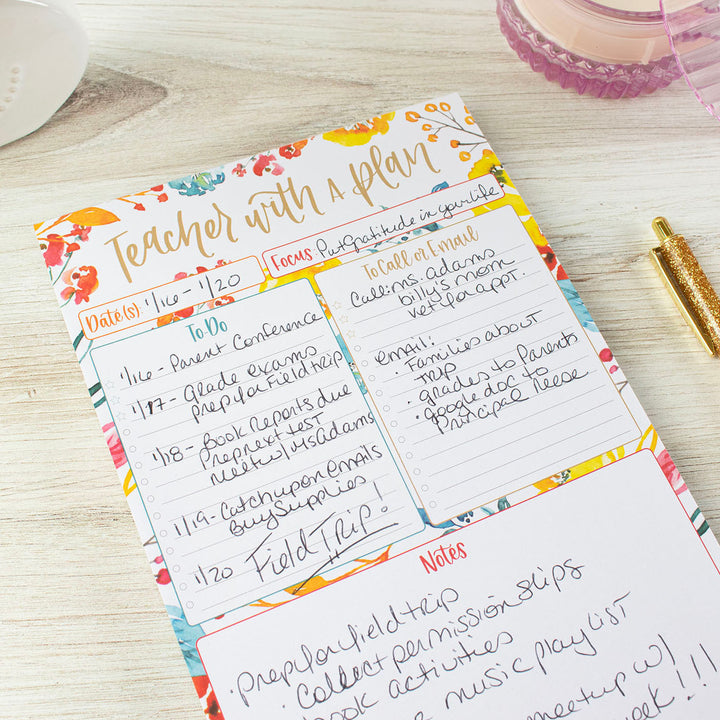 Teacher with a plan
Date(s): 1/16 - 1/20
Focus: Put Gratitude in your life
To Do
1/16 - Parent Conference
1/17 - Grade exams
prep for Field trip
1/18 - Book Reports due
Prep next test
meet w/ Ms Adams
1/19 - Catch up on emails
Buy Supplies
1/20 Field TRIP!
To Call or Email
Call: ms. adams
billy's mom
vet for appt.
email:
• Families about
trip
• grades to Parents
• google doc to
Principal Reese
Notes
• prep for field trip
• Collect permission slips
book activities
music playlist
meet up w/
!!!